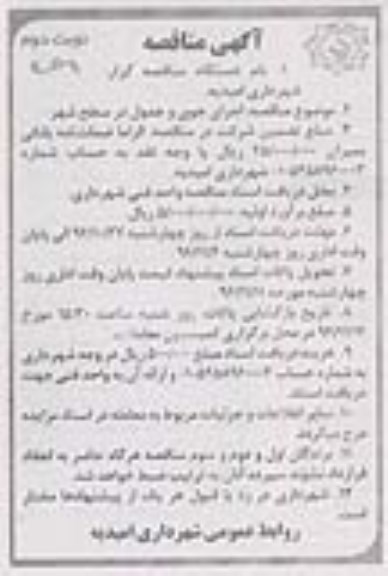 آگهی مناقصه
نوبت دوم
۱. نام دستگاه مناقصه گزار
شهرداری امیدیه
۲. موضوع مناقصه اجرای جوی و جدول در سطح شهر
۳. مبلغ تضمین شرکت در مناقصه الزاما ضمانتنامه بانکی
ریال یا وجه نقد به حساب شماره
شهرداری امیدیه
۴. محل دریافت اسناد مناقصه واحد فنی شهرداری
۵. مبلغ برآورد اولیه ریال
۶. مهلت دریافت اسناد از روز چهارشنبه الی پایان
وقت اداری روز چهارشنبه
۷. تحویل پاکات اسناد پیشنهاد قیمت پایان وقت اداری روز
چهارشنبه مورخه
۸. تاریخ بازگشایی پاکات روز شنبه ساعت مورخ
در محل برگزاری کمیسیون
۹. هزینه دریافت اسناد مبلغ ریال در وجه شهرداری
به شماره حساب و ارائه آن به واحد فنی جهت
دریافت اسناد
۱۰. سایر اطلاعات و جزئیات مربوط به معامله در اسناد مزایده
درج میگردد
۱۱. برندگان اول و دوم و سوم مناقصه هرگاه حاضر به انعقاد
قرارداد نشوند سپرده آنان به ترتیب ضبط خواهد شد
۱۲. شهرداری در رد یا قبول هر یک از پیشنهادها مختار
است
روابط عمومی شهرداری امیدیه